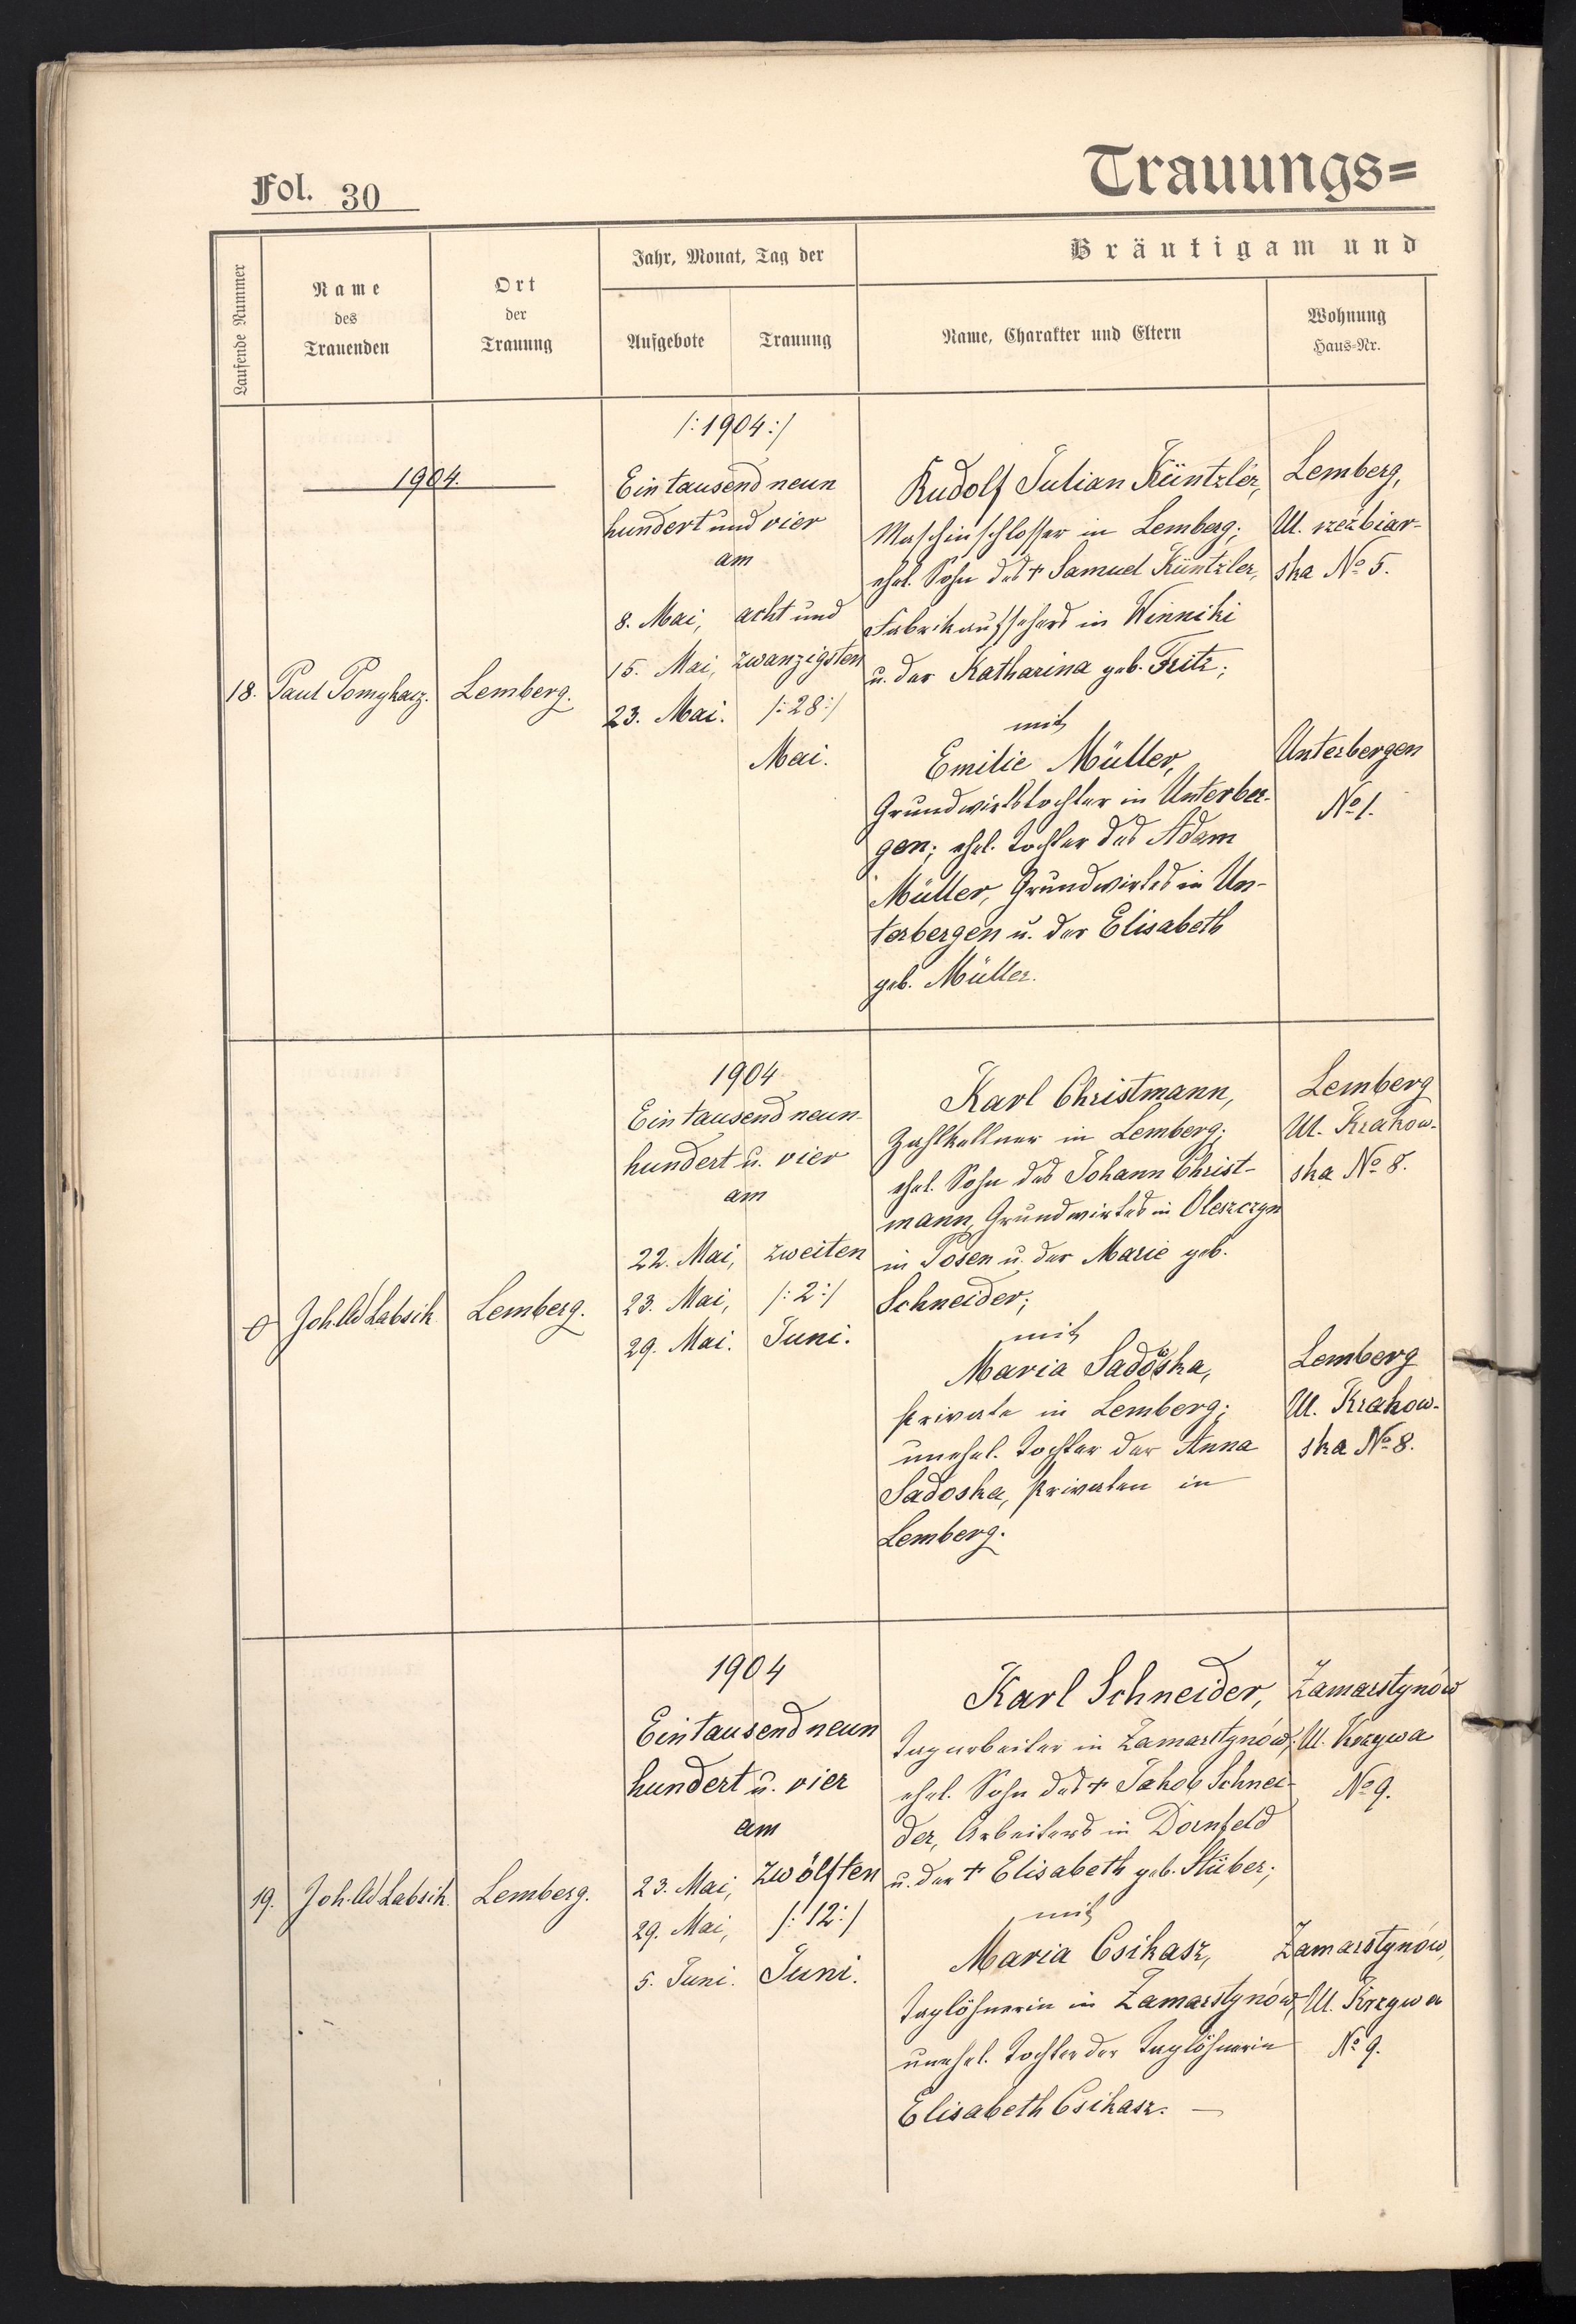 Fol. 30
Trauungs=
Laufende Nummer
Name
des
Trauenden
Ort
der
Trauung
Jahr, Monat, Tag der
Aufgebote
Trauung
Bräutigam und
Name, Charakter und Eltern
Wohnung
Haus-Nr.
1904.
18.
Paul Pomykacz.
Lemberg.
/:1904:/
Ein tausend neun
hundert und vier
am
8. Mai,
15. Mai,
23. Mai.
acht und
zwanzigsten
/:28:/
Mai.
Rudolf Julian Küntzler,
Maschinschlosser in Lemberg;
ehel. Sohn des + Samuel Küntzler,
Fabrikaufsehers in Winniki
u. der Katharina geb. Fritz;
mit
Emilie Müller,
Grundwirtstochter in Unterber-
gen; ehel. Tochter des Adam
Müller, Grundwirtes in Un-
terbergen u. der Elisabeth
geb. Müller.
Lemberg,
Ul. rzezbiar-
ska No 5.
Unterbergen
No 1.
0
Joh. Ad Labsik
Lemberg.
1904
Ein tausend neun-
hundert u. vier
am
22. Mai,
23. Mai,
29. Mai.
zweiten
/:2:/
Juni.
Karl Christmann,
Zahlkellner in Lemberg;
ehel. Sohn des Johann Christ-
mann, Grundwirtes in Oleszczyn
in Posen u. der Marie geb.
Schneider;
mit
Maria Sadoska,
Private in Lemberg;
unehel. Tochter der Anna
Sadoska, Privaten in
Lemberg.
Lemberg
Ul. Krakow-
ska No 8.
Lemberg
Ul. Krakow-
ska No 8.
19.
Joh. Ad Labsik
Lemberg.
1904
Ein tausend neun
hundert u. vier
am
23. Mai,
29. Mai,
5. Juni.
zwölften
/:12:/
Juni.
Karl Schneider,
Tagarbeiter in Zamarstynów;
ehel. Sohn des + Jakob Schnei-
der, Arbeiters in Dornfeld
u. der + Elisabeth geb. Stüber;
mit
Maria Csikasz,
Taglöhnerin in Zamarstynów,
unehel. Tochter der Taglöhnerin
Elisabeth Csikasz. —
Zamarstynów
Ul. Krzywa
No 9.
Zamarstynów,
Ul. Krzywa
No 9.